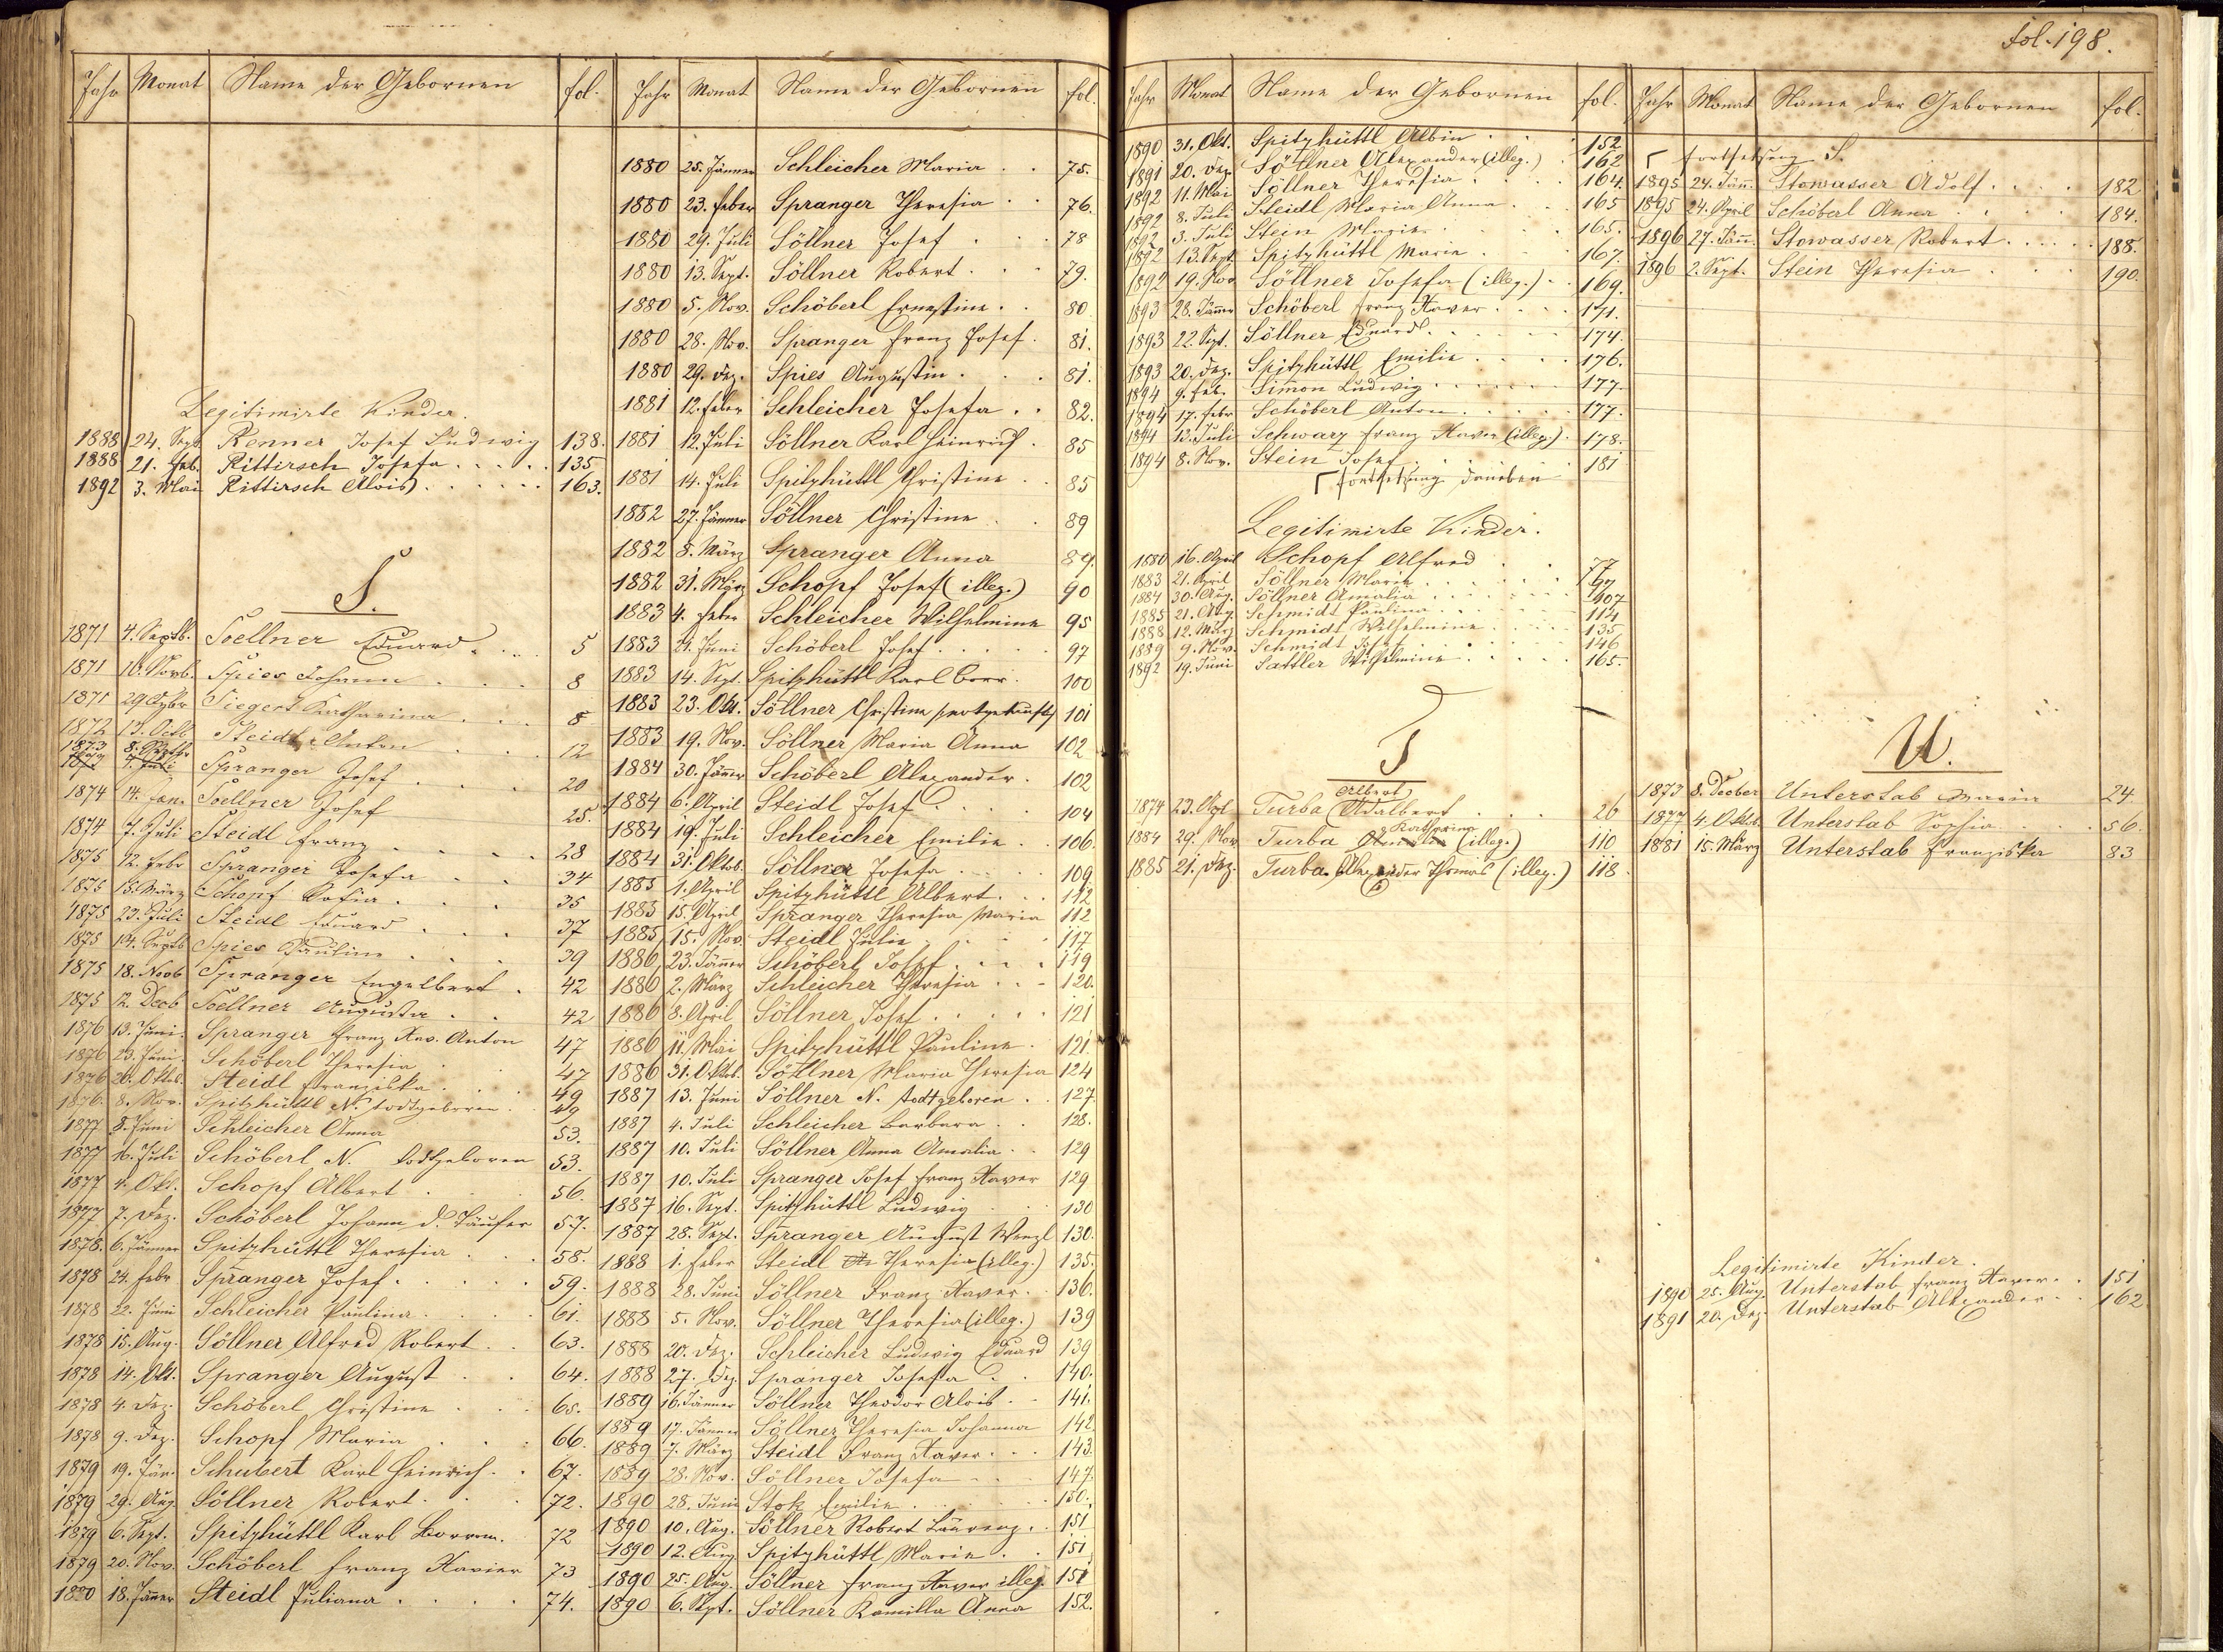 fol. 198.
Jahr Monat Name der Gebornen fol.
Legitimirte Kinder.
1888 24. Sept. Renner Josef Ludwig 138.
1888 21. Feb. Rittirsch Josefa 135
1892 3. Mai Rittirsch Alois 163.
S.
1871 4. Septb. Soellner Eduard 5
1871 10. Novb. Spies Johann 8
1871 29 Siegert Katharina 8
1872 13. Octb Steidl Anton 12
1873 8. Septbr Spranger Josef 20
1874 14. Jan. Soellner Josef 25.
1874 7. Juli Steidl Franz 28
1875 12. Febr Spranger Josefa 34
1875 18. März Schopf Sofia 35
1875 23. Juli Steidl Eduard 37
1875 Septb Spies Pauline 39
1875 18. Novb Spranger Engelbert 42
1875 12. Decb Soellner Augusta 42
1876 13. Juni Spranger Franz Xav. Anton 47
1876 23. Juni Schöberl Theresia 47
1876 26. Oktob. Steidl Franziska 49
1876. 8. Nov. Spitzhüttl N. todtgeboren 49
1877 8. Juni Schleicher Anna 53.
1877 16. Juli Schöberl N. todtgeboren 53.
1877 4. Okt. Schopf Albert 56.
1877 7. Dez. Schöberl Johann d. Täufer 57.
1878. 6. Jänner Spitzhüttl Theresia 58.
1878 24. Febr Spranger Josef 59.
1878 22. Juni Schleicher Paulina 61.
1878 15. Aug. Söllner Alfred Robert 63.
1878 14. Okt. Spranger August 64.
1878 4. Dez. Schöberl Christine 65.
1878 9. Dez. Schopf Maria 66.
1879 19. Jän. Schubert Karl Heinrich 67.
1879 29. Aug. Söllner Robert 72.
1879 6. Sept. Spitzhüttl Karl Borrom. 72
1879 20. Nov. Schöberl Franz Xavier 73
1880 18. Jänner Steidl Juliana 74.
Jahr Monat Name der Gebornen fol.
1880 25. Jänner Schleicher Maria 75.
1880 23. Feber Spranger Theresia 76.
1880 29. Juli Söllner Josef 78
1880 13. Sept. Söllner Robert 79.
1880 5. Nov. Schöberl Ernestine 80
1880 28. Nov. Spranger Franz Josef 81.
1880 29. Dez. Spies Augustin 81.
1881 12. Feber Schleicher Josefa 82.
1881 12. Juli Söllner Karl Heinrich 85
1881 14. Juli Spitzhüttl Christine 85
1882 27. Jänner Söllner Christine 89
1882 8. März Spranger Anna 89.
1882 31. März Schopf Josef (illeg.) 90
1883 4. Feber Schleicher Wilhelmine 95
1883 21. Juni Schöberl Josef 97
1883 14. Sept. Spitzhüttl Karl Borr. 100
1883 23. Okt. Söllner Christina (nothgetauft) 101
1883 19. Nov. Söllner Maria Anna 102
1884 30. Jänner Schöberl Alexander 102
1884 6. April Steidl Josef 104
1884 19. Juli Schleicher Emilie 106.
1884 31. Oktob. Söllner Josefa 109
1885 1. April Spitzhüttl Albert 112
1885 15. April Spranger Theresia Maria 112
1885 15. Nov. Steidl Julie 117
1886 23. Jänner Schöberl Josef 119
1886 2. März Schleicher Theresia 120.
1886 8. April Söllner Josef 121
1886 11. Mai Spitzhüttl Pauline 121.
1886 31. Oktob. Söllner Maria Theresia 124
1887 13. Juni Söllner N. todtgeboren 127.
1887 4. Juli Schleicher Barbara 128.
1887 10. Juli Söllner Anna Amalia 129
1887 10. Juli Spranger Josef Franz Xaver 129
1887 16. Sept. Spitzhüttl Ludwig 130
1887 28. Sept. Spranger August Wenzl 130.
1888 1. Feber Steidl Theresia (illeg.) 135.
1888 28. Juni Söllner Franz Xaver 136.
1888 5. Nov. Söllner Theresia (illeg.) 139
1888 20. Dez. Schleicher Ludwig Eduard 139
1888 27. Dez. Spranger Josefa 140.
1889 16. Jänner Söllner Theodor Alois 141.
1889 17. Jänner Söllner Theresia Johanna 142.
1889 7. März Steidl Franz Xaver 143.
1889 28. Nov. Söllner Josefa 147.
1890 28. Juni Stok Emilie 150.
1890 10. Aug. Söllner Robert Laurenz 151
1890 12. Aug. Spitzhüttl Marie 151
1890 25. Aug. Söllner Franz Xaver illeg. 151
1890 6. Sept. Söllner Kamilla Anna 152.
Jahr Monat Name der Gebornen fol.
1890 31. Okt. Spitzhüttl Albin 152
1891 20. Dez Söllner Alexander (illeg.) 162
1892 11. Mai Söllner Theresia 164.
1892 8. Juli Steidl Maria Anna 165
1892 3. Juli Stein Marie 165.
1892 13. Sept Spitzhüttl Marie 167.
1892 19. Nov Söllner Josefa (illeg.) 169.
1893 28. Jänner Schöberl Franz Xaver 171.
1893 22. Sept. Söllner Eduard 174.
1893 20. Dez. Spitzhüttl Emilie 176.
1894 9. Feb. Simon Ludwig 177.
1894 17. Febr Schöberl Anton 177.
1894 12. Juli Schwarz Franz Xaver (illeg.) 178.
1894 8. Nov. Stein Josef 181
Fortsetzung daneben
Legitimirte Kinder.
1880 16. April Schopf Alfred 77
1883 21. April Söllner Marie 97
1884 30. Aug. Söllner Amalia 107
1885 21. Aug. Schmidt Paulina 114
1888 12. März Schmidt Wilhelmine 135
1889 9. Nov. Schmidt Josef 146
1892 19. Juni Sattler Wilhelmine 165.
T
Albert
1874 23. Turba Adalbert 26
Katharina
1884 29. Nov Turba (illeg.) 110
1885 21. Dez. Turba Alexander Thomas (illeg.) 118
Jahr Monat Name der Gebornen fol.
Fortsetzung S.
1895 24. Jän. Stowasser Adolf 182
1895 24. April Schöberl Anna 184.
1896 27. Jän. Stowasser Robert 188.
1896 2. Sept. Stein Theresia 190.
U.
1873 8. Decber Unterstab Maria 24
1877 4. Oktob. Unterstab Sophia 56.
1881 15. März Unterstab Franziska 83
Legitimirte Kinder.
1890 25. Aug. Unterstab Franz Xaver 151
1891 20. Dez. Unterstab Alexander 162.